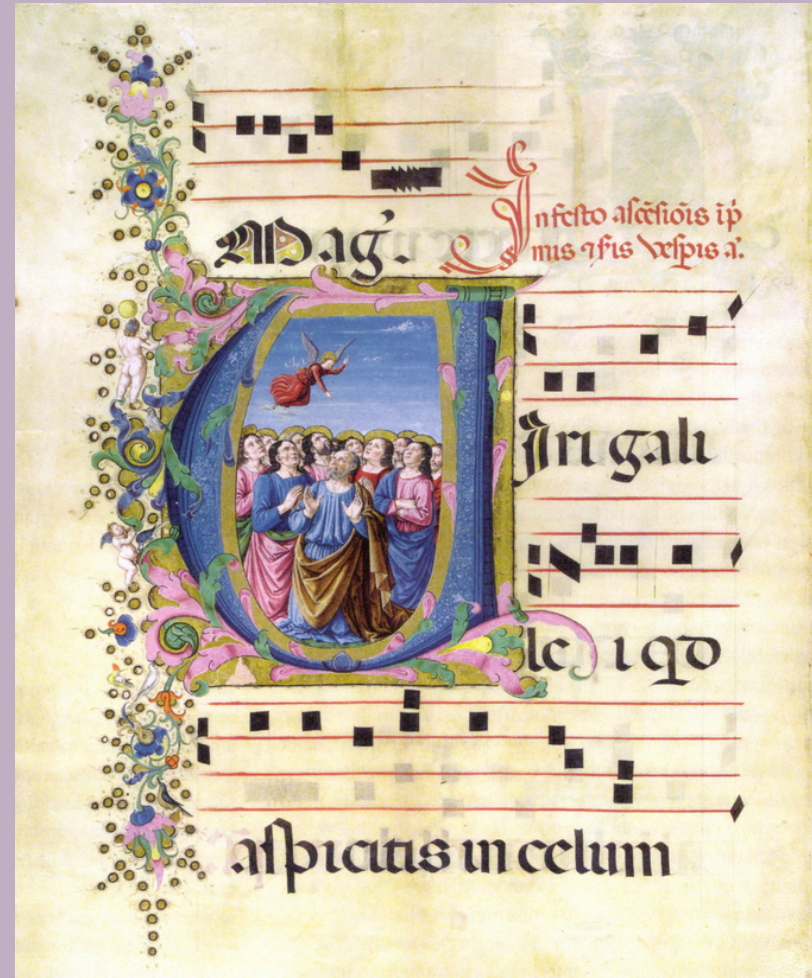 Mag.
In festo ascēsiōis ip̄
mis ⁊ s̄is vesp̄is a᷒.
Viri gali
lei qd
aspicitis in celum